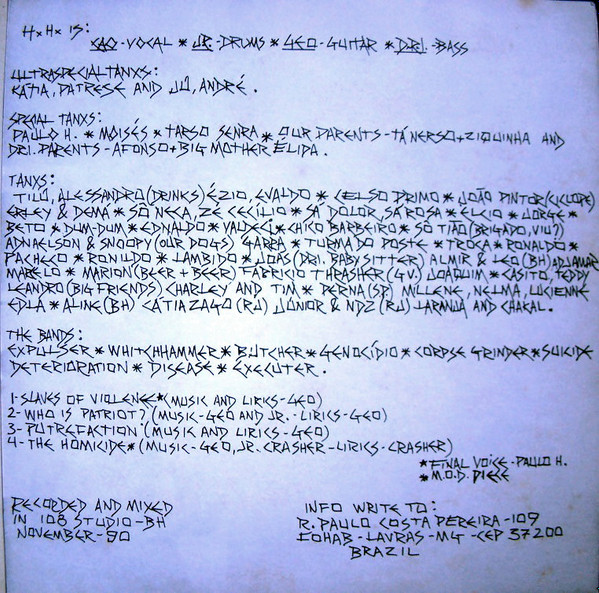 H*H* IS:
CAO-VOCAL * JR-DRUMS * GEO-GUITAR * DRI-BASS
ULTRASPECIALTANXS:
KATIA, PATRESE AND JÚ, ANDRÉ.
SPECIAL TANXS:
PAULO H. * MOISÉS * TARSO SENRA * OUR PARENTS-TÁ NERSO+ZIQUINHA AND
DRI. PARENTS-AFONSO+BIG MOTHER ÉLIDA.
TANXS:
TILÚ, ALESSANDRO (DRINKS) ÉZIO, EVALDO * CELSO PRIMO * JOÃO PINTOR (CICLOPE)
ERLEY & DEMA * SÔ NECA, ZÉ CECÍLIO * SÁ DOLOR, SÁ ROSA * ÉLCIO * JORGE *
BETO * DUM-DUM * EDNALDO * VALDECI * CHICO BARBEIRO * SÔ TIÃO (BRIGADO, VIU?)
ADNAELSON & SNOOPY (OUR DOGS) GARRA * TURMA DO POSTE * TROCA * RONALDO *
PACHECO * RONILDO * LAMBIDO * JOÁS (DRI. BABY SITTER) ALMIR & LEO (BH) ADJAMAR
MARCELO * MARION (BEER + BEER) FABRICIO THRASHER (G.V.) JOAQUIM * CASITO, TEDDY
LEANDRO (BIG FRIENDS) CHARLEY AND TIM * PERNA (SP) MILLENE, NELMA, LUCIENNE
EDLA * ALINE (BH) CÁTIA ZAGO (RJ) JÚNIOR & NDZ (RJ) LARANJA AND CHAKAL.
THE BANDS:
EXPULSER * WHITCHHAMMER * BUTCHER * GENOCÍDIO * CORPSE GRINDER * SUICIDE
DETERIORATION * DISEASE * EXECUTER.
1-SLAVES OF VIOLENE * (MUSIC AND LIRICS-GEO)
2-WHO IS PATRIOT? (MUSIC-GEO AND JR.-LIRICS-GEO)
3-PUTREFACTION (MUSIC AND LIRICS-GEO)
4-THE HOMICIDE * (MUSIC-GEO, JR. CRASHER-LIRICS-CRASHER)
* FINAL VOICE-PAULO H.
* M.O.D. PIECE
RECORDED AND MIXED
IN 108 STUDIO-BH
NOVEMBER-90
INFO WRITE TO:
R. PAULO COSTA PEREIRA-109
COHAB-LAVRAS-MG-CEP 37200
BRAZIL